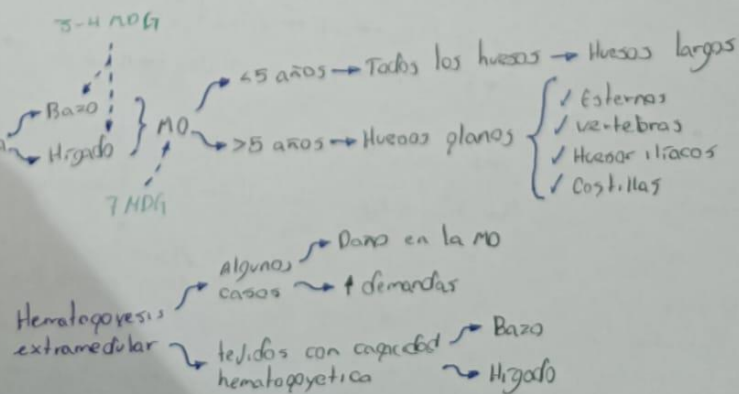 3-4 MDG
<5 años → Todos los huesos → Huesos largos
Bazo
Hígado
} MO
>5 años → Huesos planos {
✓ Esternon
✓ vertebras
✓ Huesos ilíacos
✓ Costillas
7 MDG
Hematopoyesis
extramedular
Algunos
casos
Daño en la MO
↑ demandas
tejidos con capacidad
hematopoyetica
Bazo
Higado